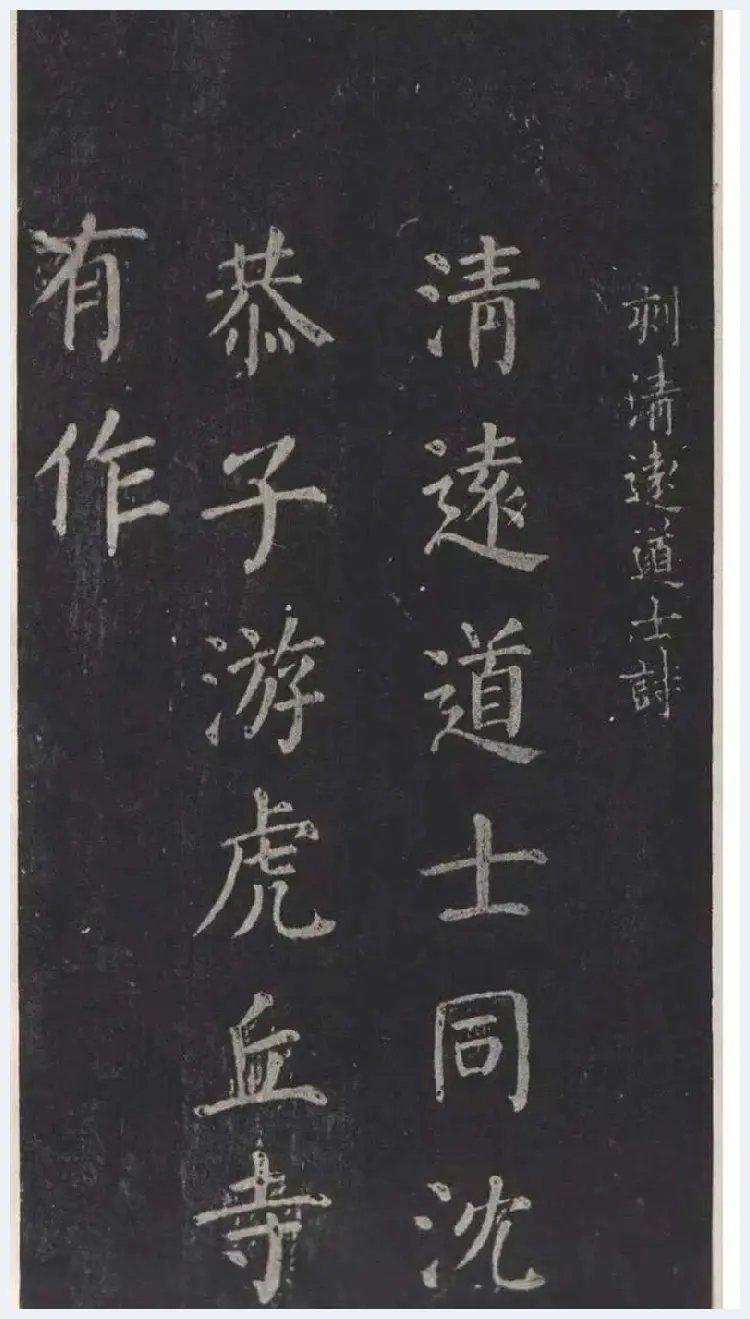 刻清遠道士詩
清遠道士同沈
恭子游虎丘寺
有作